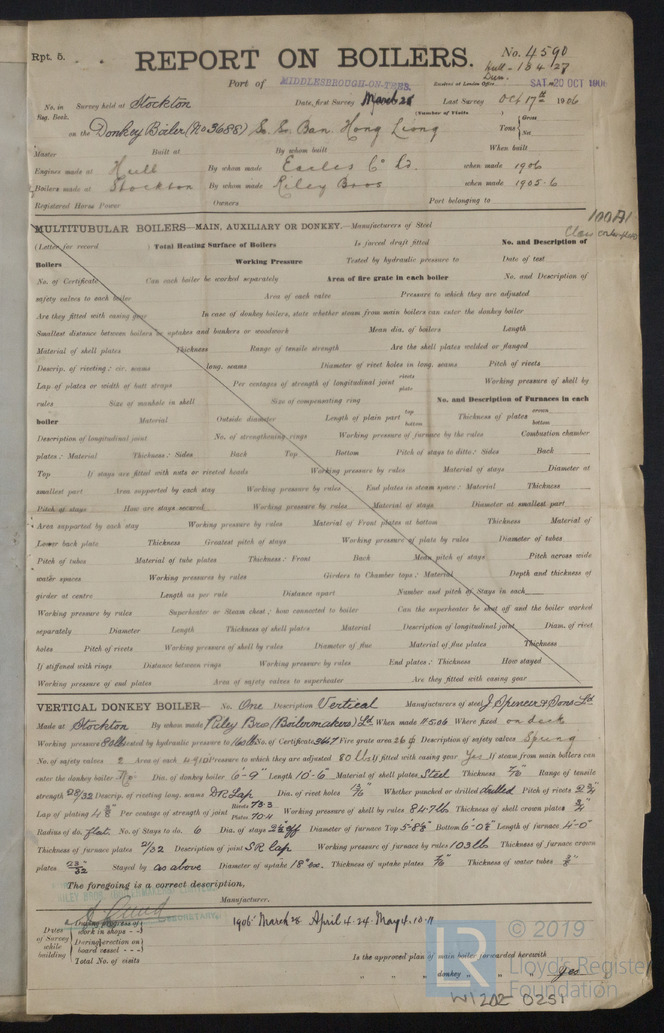 Rpt. 5.
REPORT ON BOILERS.
No. 4590
Hull - 18 4 27
Port of MIDDLESBROUGH-ON-TEES.
Received at London Office SAT. 20 OCT 1906
No. in Survey held at Stockton Date, first Survey March 28 Last Survey Oct 17th 1906
Reg. Book. (Number of Visits )
on the Donkey Boiler (No 3688) S. S. Ban Hong Liong Tons { Gross Net
Master Built at By whom built When built
Engines made at Hull By whom made Earles Co Ld. when made 1906
Boilers made at Stockton By whom made Riley Bros when made 1905.6
Registered Horse Power Owners Port belonging to
100A1
MULTITUBULAR BOILERS—MAIN, AUXILIARY OR DONKEY.—Manufacturers of Steel
(Letter for record ) Total Heating Surface of Boilers Is forced draft fitted No. and Description of
Boilers Working Pressure Tested by hydraulic pressure to Date of test
No. of Certificate Can each boiler be worked separately Area of fire grate in each boiler No. and Description of
safety valves to each boiler Area of each valve Pressure to which they are adjusted
Are they fitted with easing gear In case of donkey boilers, state whether steam from main boilers can enter the donkey boiler
Smallest distance between boilers or uptakes and bunkers or woodwork Mean dia. of boilers Length
Material of shell plates Thickness Range of tensile strength Are the shell plates welded or flanged
Descrip. of riveting: cir. seams long. seams Diameter of rivet holes in long. seams Pitch of rivets
Lap of plates or width of butt straps Per centages of strength of longitudinal joint rivets plate Working pressure of shell by
rules Size of manhole in shell Size of compensating ring No. and Description of Furnaces in each
boiler Material Outside diameter Length of plain part top bottom Thickness of plates crown bottom
Description of longitudinal joint No. of strengthening rings Working pressure of furnace by the rules Combustion chamber
plates: Material Thickness: Sides Back Top Bottom Pitch of stays to ditto: Sides Back
Top If stays are fitted with nuts or riveted heads Working pressure by rules Material of stays Diameter at
smallest part Area supported by each stay Working pressure by rules End plates in steam space: Material Thickness
Pitch of stays How are stays secured Working pressure by rules Material of stays Diameter at smallest part
Area supported by each stay Working pressure by rules Material of Front plates at bottom Thickness Material of
Lower back plate Thickness Greatest pitch of stays Working pressure of plate by rules Diameter of tubes
Pitch of tubes Material of tube plates Thickness: Front Back Mean pitch of stays Pitch across wide
water spaces Working pressures by rules Girders to Chamber tops: Material Depth and thickness of
girder at centre Length as per rule Distance apart Number and pitch of Stays in each
Working pressure by rules Superheater or Steam chest; how connected to boiler Can the superheater be shut off and the boiler worked
separately Diameter Length Thickness of shell plates Material Description of longitudinal joint Diam. of rivet
holes Pitch of rivets Working pressure of shell by rules Diameter of flue Material of flue plates Thickness
If stiffened with rings Distance between rings Working pressure by rules End plates: Thickness How stayed
Working pressure of end plates Area of safety valves to superheater Are they fitted with easing gear
VERTICAL DONKEY BOILER— No. One Description Vertical Manufacturers of steel J. Spencer & Sons Ld
Made at Stockton By whom made Riley Bros (Boilermakers) Ld When made Where fixed on deck
Working pressure 80 lbs tested by hydraulic pressure to 160 lbs No. of Certificate 3447 Fire grate area 26 Description of safety valves Spring
No. of safety valves 2 Area of each 4.910 Pressure to which they are adjusted 80 lbs If fitted with easing gear Yes If steam from main boilers can
enter the donkey boiler No Dia. of donkey boiler 6-9" Length 10-6" Material of shell plates Steel Thickness 7/16 Range of tensile
strength 28/32 Descrip. of riveting long. seams DR Lap Dia. of rivet holes 13/16 Whether punched or drilled drilled Pitch of rivets
Lap of plating Per centage of strength of joint Rivets 73.3 Plates 70.4 Working pressure of shell by rules 84.7 lb Thickness of shell crown plates 3/4
Radius of do. flat No. of Stays to do. 6 Dia. of stays Diameter of furnace Top Bottom Length of furnace 4-0"
Thickness of furnace plates 21/32 Description of joint SR lap Working pressure of furnace by rules 103 lb Thickness of furnace crown
plates 23/32 Stayed by as above Diameter of uptake 18" ex. Thickness of uptake plates 7/16 Thickness of water tubes 3/8
The foregoing is a correct description,
RILEY BROS (BOILERMAKERS) LIMITED
Manufacturer.
SECRETARY
Dates of Survey while building { During progress of work in shops - - During erection on board vessel - - - Total No. of visits
1906 March 28. April 4. 24. May 4. 10. 11
Is the approved plan of main boiler forwarded herewith
" " " donkey " " " Yes
LR
© 2019
Lloyd's Register
Foundation
W1202-0251